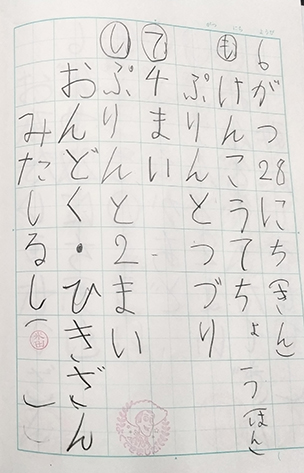 6がつ28にち(きん)
もけんこうてちょう(ほん)
ぷりんとつづり
て4まい
しぷりんと2まい
おんどく・ひきざん
みたしるし( )